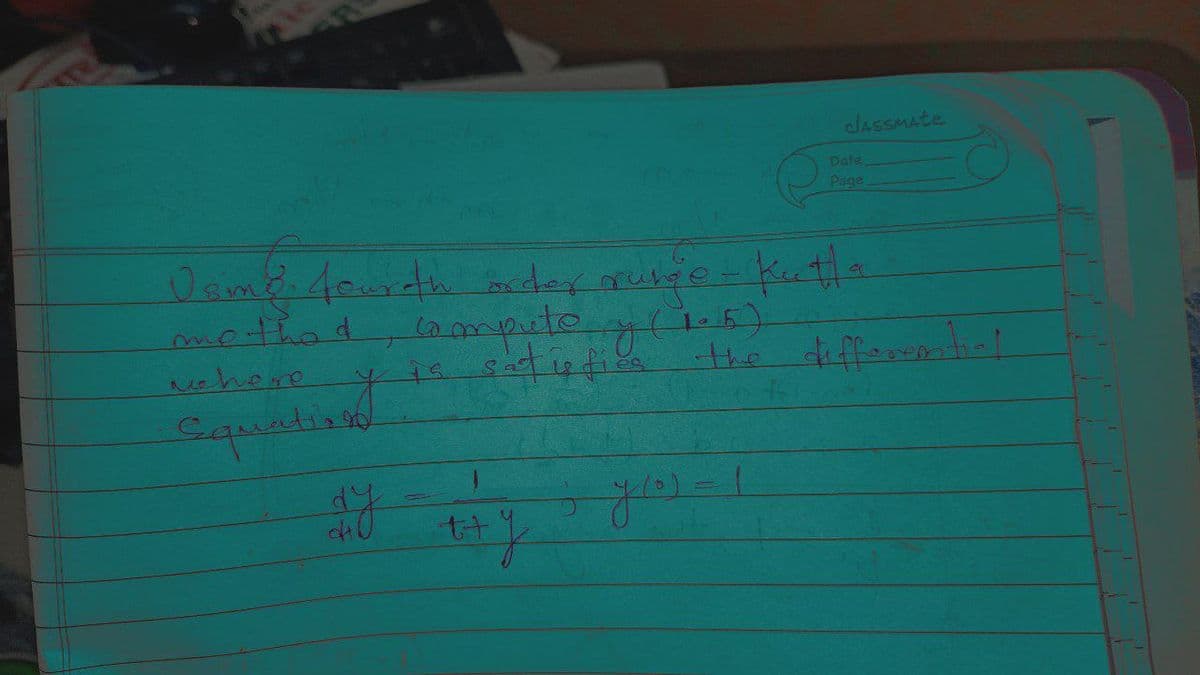 classmate
Date
Page
Using fourth order runge-Kutta
method, compute y(1.5)
where y is satisfies the differential
Equation
dy/dt = 1/(t+y) ; y(0) = 1